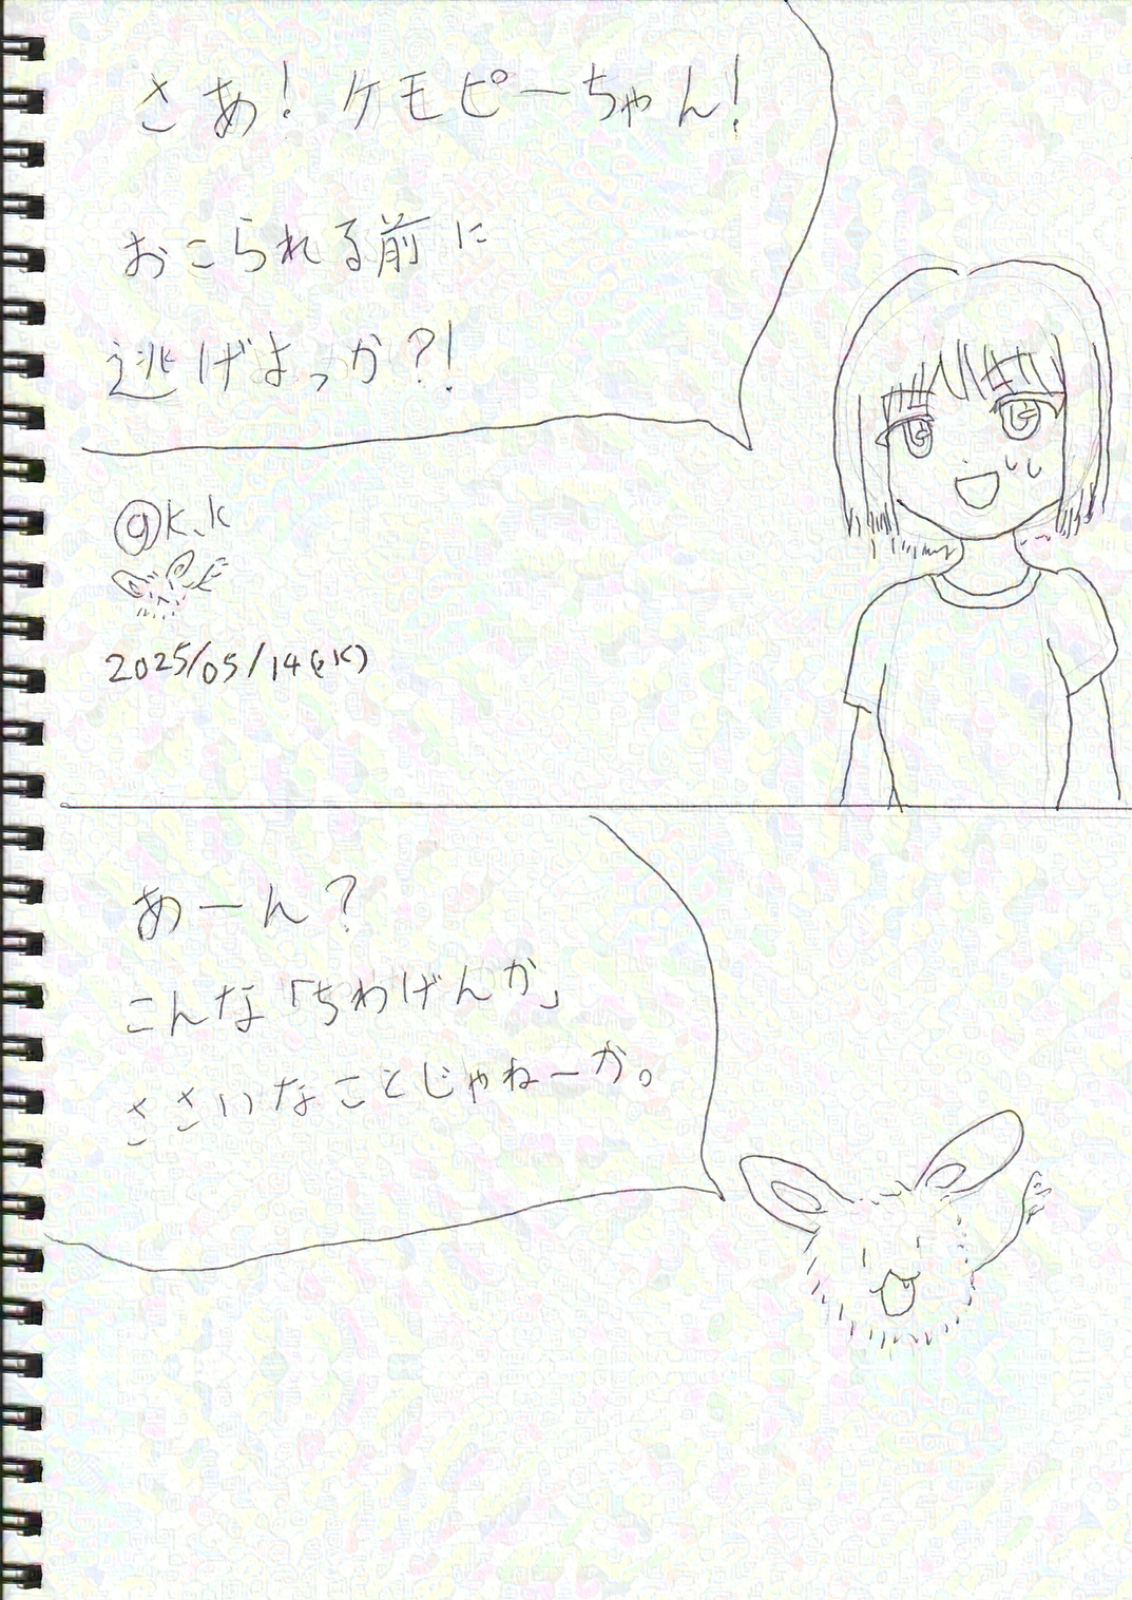 さあ!ケモピーちゃん!
おこられる前に
逃げよっか?!
@k.k
2025/05/14(水)
あーん?
こんな「ちわげんか」
ささいなことじゃねーか。